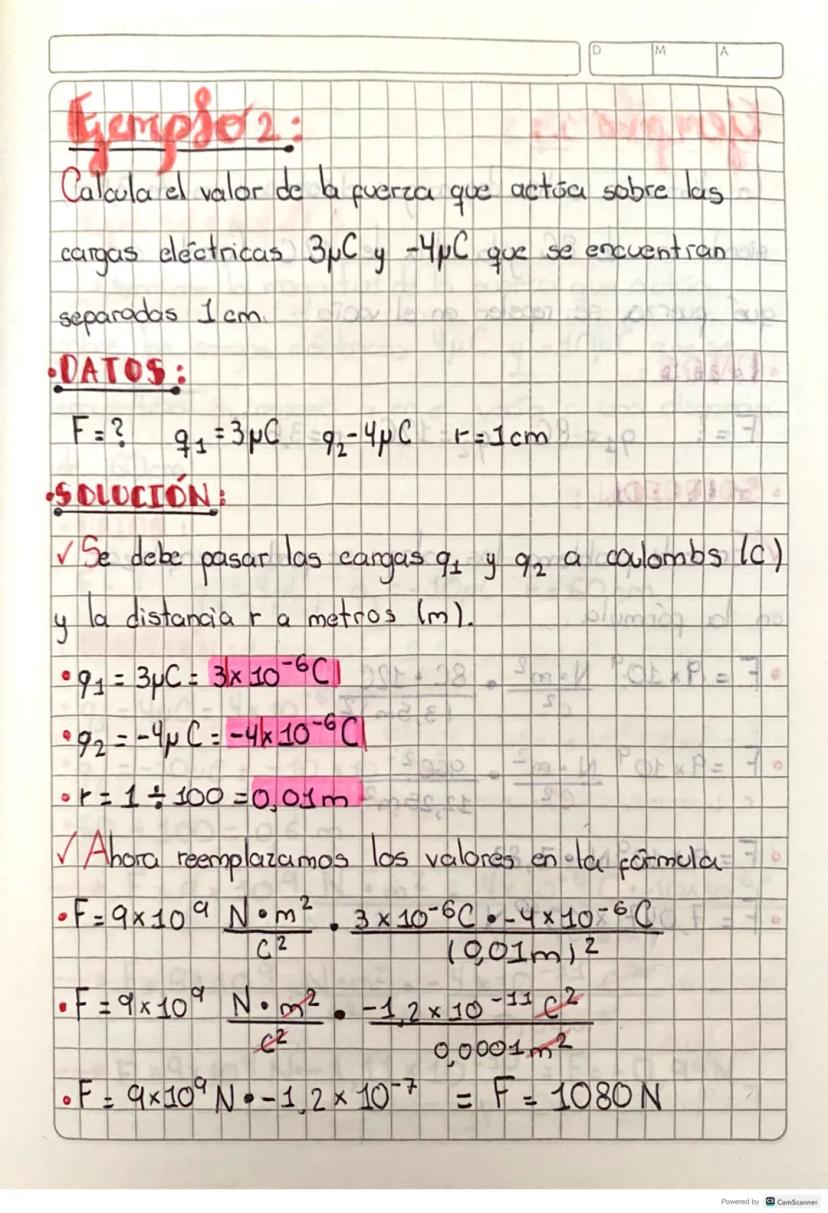 D M A
Ejemplo 2:
Calcula el valor de la fuerza que actúa sobre las
cargas eléctricas 3μC y -4μC que se encuentran
separadas 1 cm.
•DATOS:
F=? q₁=3μC q₂-4μC r=1cm
•SOLUCIÓN:
✓ Se debe pasar las cargas q₁ y q₂ a coulombs (C)
y la distancia r a metros (m).
•q₁ = 3μC = 3x10⁻⁶C
•q₂ = -4μC = -4x10⁻⁶C
•r = 1 ÷ 100 = 0,01m
✓ Ahora reemplazamos los valores en la fórmula
•F=9x10⁹ N•m²/C² • 3x10⁻⁶C•-4x10⁻⁶C/(0,01m)²
•F=9x10⁹ N•m²/C² • -1,2x10⁻¹¹C²/0,0001m²
•F=9x10⁹N•-1,2x10⁻⁷ = F=1080N
Powered by CS CamScanner